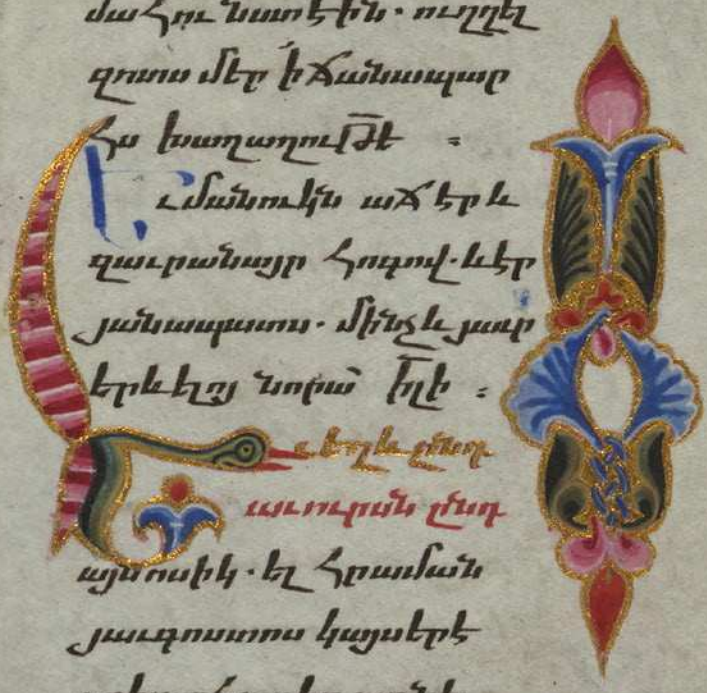 մահու նստէին. ուղղել
զոտս մեր ի ճանապար
հս խաղաղու֊թե :
Եւ մանուկն աճեր և
զաւրանայր հոգով. և էր
յանապատս. մինչև յաւր
երևելոյ նորա ի̅լի :
Եւ եղև ընդ
աւուրսն ընդ
այնոսիկ. ել հրաման
յաւգոստոս կայսերէ